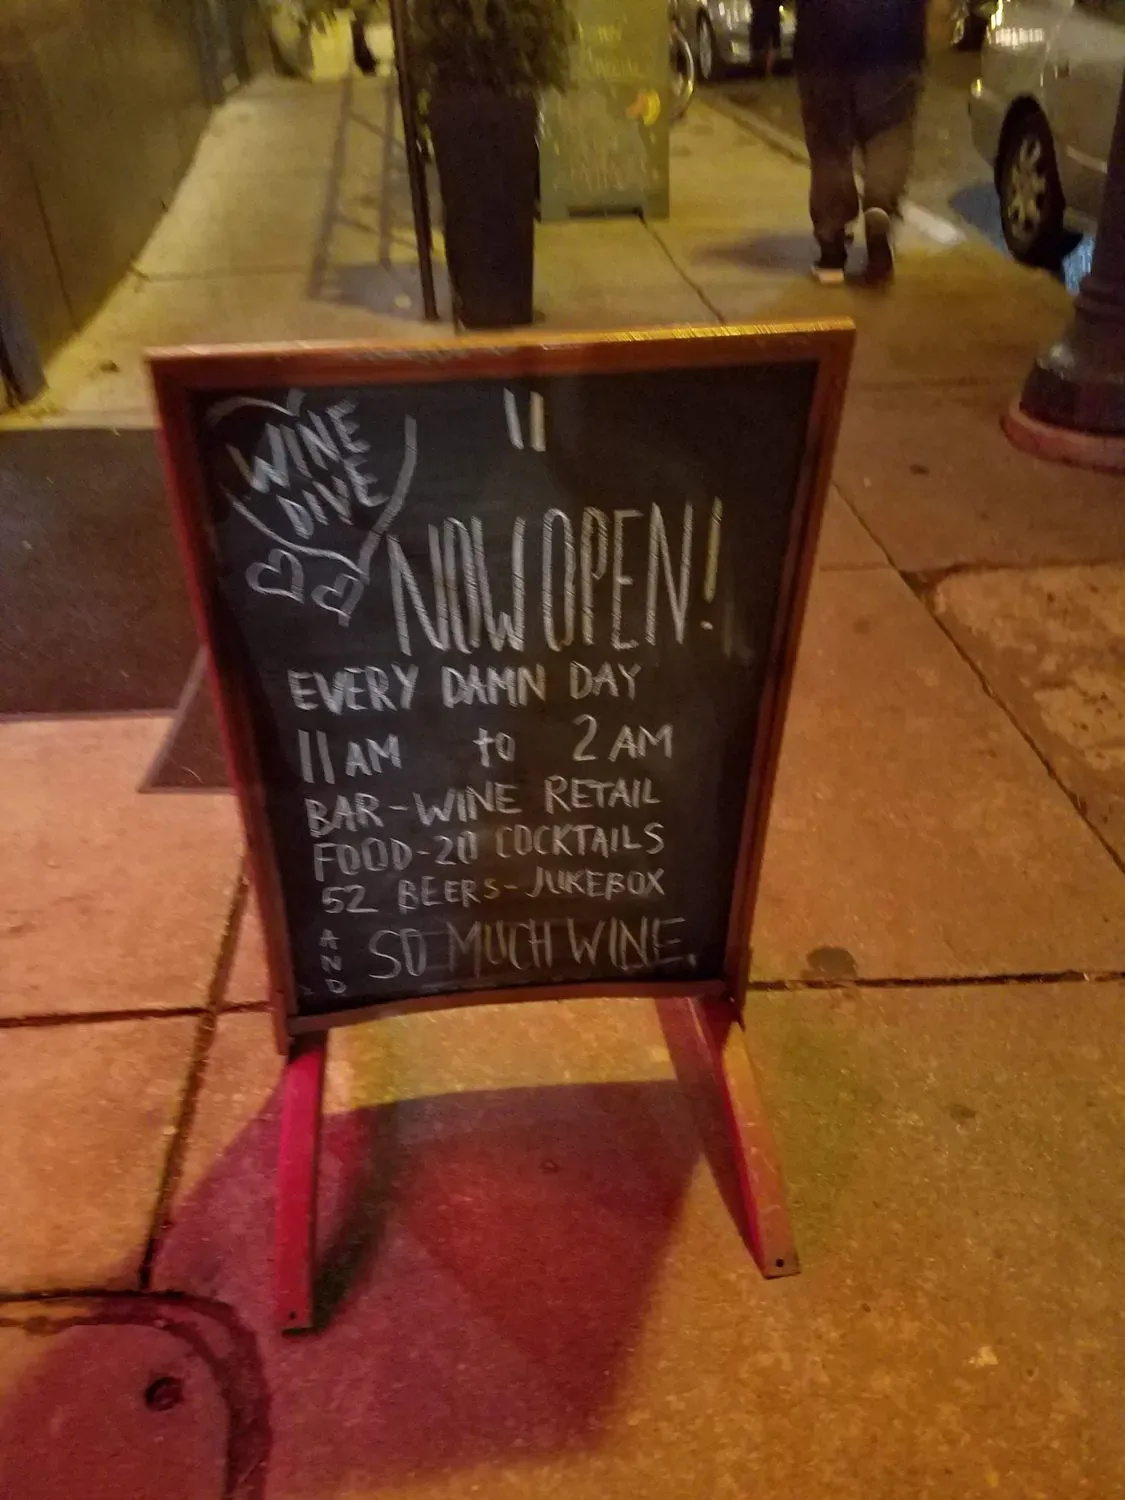 WINE
DIVE
11
NOW OPEN!
EVERY DAMN DAY
11 AM to 2 AM
BAR - WINE RETAIL
FOOD - 20 COCKTAILS
52 BEERS - JUKEBOX
AND SO MUCH WINE.